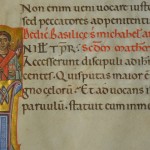 Non enim ueni uocare iusto
sed peccatores ad penitenti
Dedic Basilicę s michahel ar
N ILL TPR. Scdm mathe
Accesserunt discipuli ad ih
centes. Quis putas maior e
celorum? Et aduocans ih
paruulum. statuit eum in me